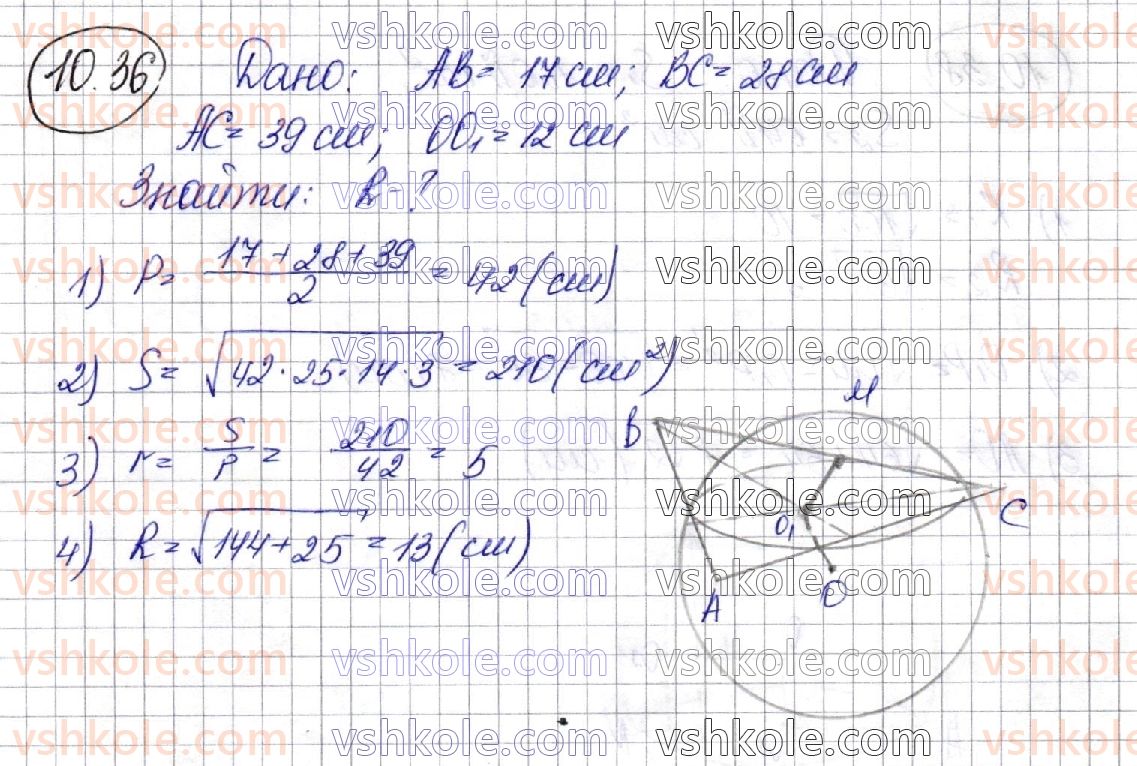 10.36 Дано: AB = 17 см; BC = 28 см
AC = 39 см; OO₁ = 12 см
Знайти: R - ?
1) P = (17 + 28 + 39)/2 = 42 (см)
2) S = √(42·25·14·3) = 210 (см²)
3) r = S/P = 210/42 = 5
4) R = √(144 + 25) = 13 (см)
M
B
C
O₁
A
O
vshkole.com